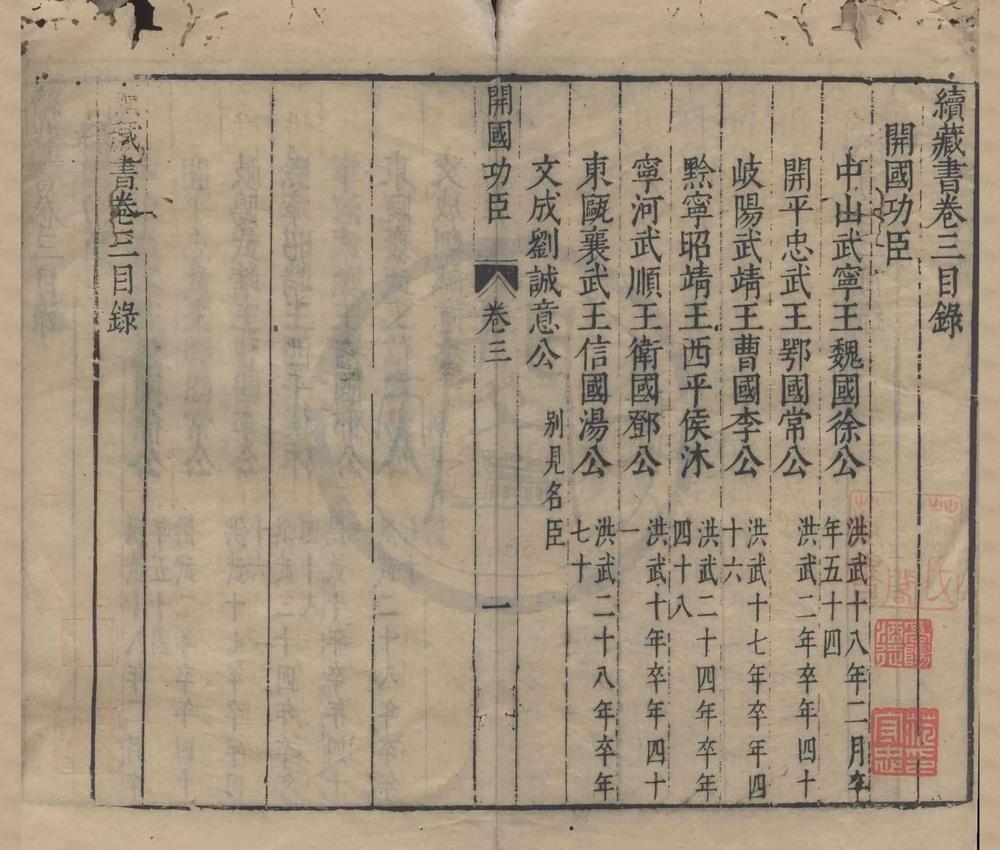 續藏書卷三目錄
開國功臣
中山武寧王魏國徐公 洪武十八年二月卒年五十四
開平忠武王鄂國常公 洪武二年卒年四十
岐陽武靖王曹國李公 洪武十七年卒年四十六
黔寧昭靖王西平侯沐 洪武二十四年卒年四十八
寧河武順王衛國鄧公 洪武十年卒年四十一
東甌襄武王信國湯公 洪武二十八年卒年七十
文成劉誠意公 別見名臣
開國功臣 卷三 一
續藏書卷三目錄